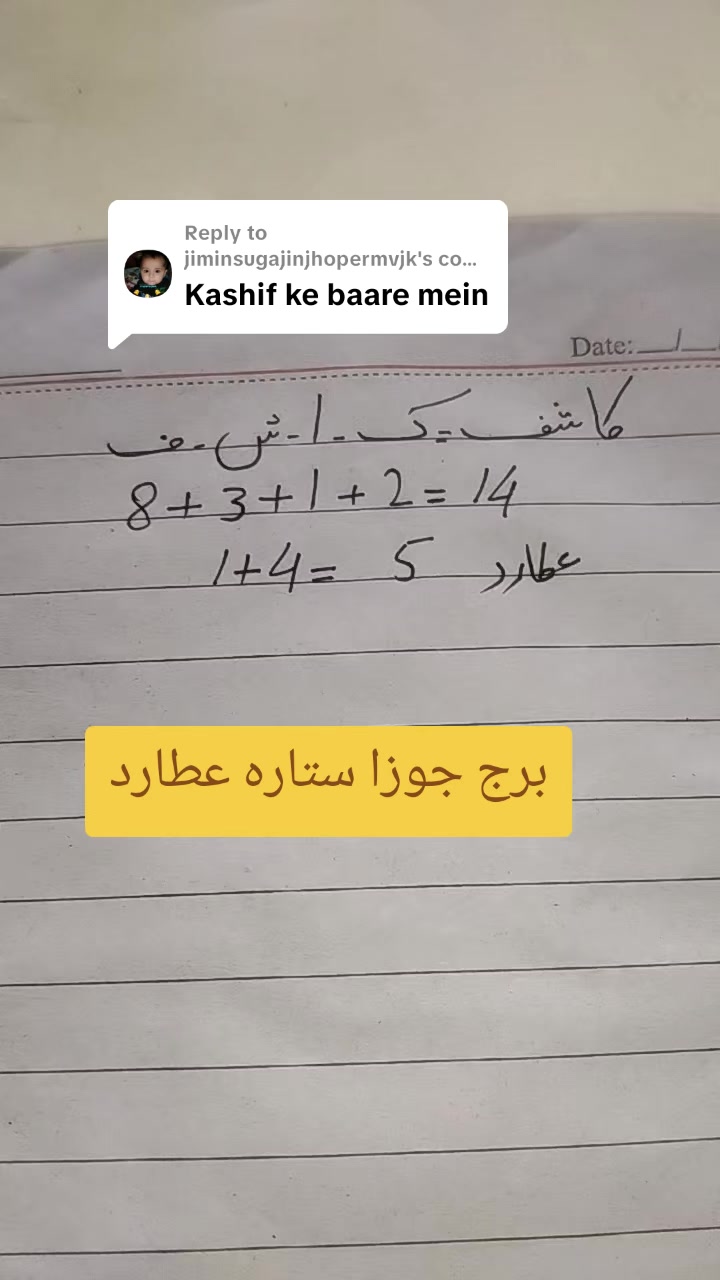 Reply to
jiminsugajinjhopermvjk's co...
Kashif ke baare mein
Date:__/__
کاشف = ک - ا - ش - ف
8+3+1+2=14
1+4= 5 عطارد
برج جوزا ستاره عطارد